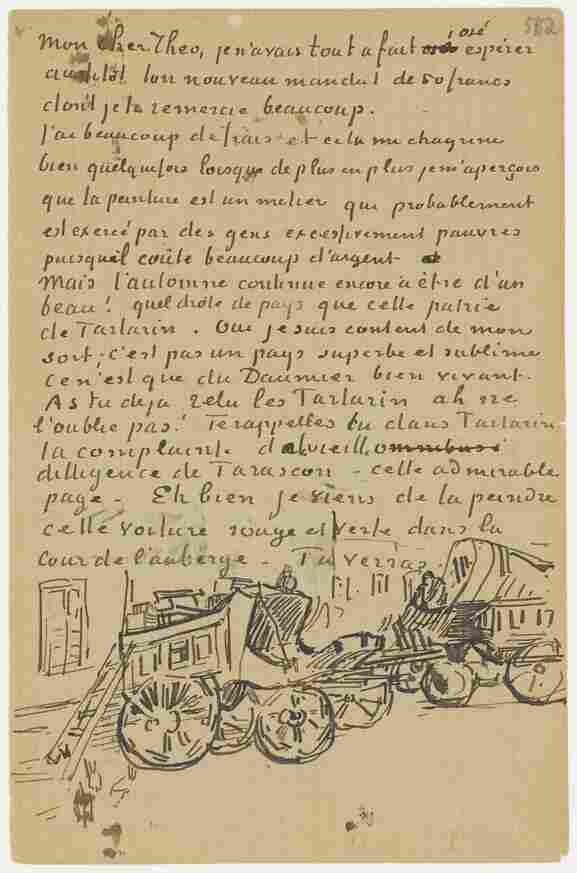 552
Mon cher Theo, je n'avais tout a fait osé espérer
aussitôt ton nouveau mandat de 50 francs
dont je te remercie beaucoup.
J'ai beaucoup de frais et cela me chagrine
bien quelquefois lorsque de plus en plus je m'aperçois
que la peinture est un metier qui probablement
est exercé par des gens excessivement pauvres
puisqu'il coûte beaucoup d'argent
Mais l'automne continue encore à être d'un
beau! quel drôle de pays que cette patrie
de Tartarin. Oui je suis content de mon
sort. c'est pas un pays superbe et sublime
ce n'est que du Daumier bien vivant.
As tu deja relu les Tartarin ah ne
l'oublie pas! Te rappelles tu dans Tartarin
la complainte de la vieille
diligence de Tarascon - cette admirable
page - Eh bien je viens de la peindre
cette voiture rouge et verte dans la
cour de l'auberge - Tu verras.